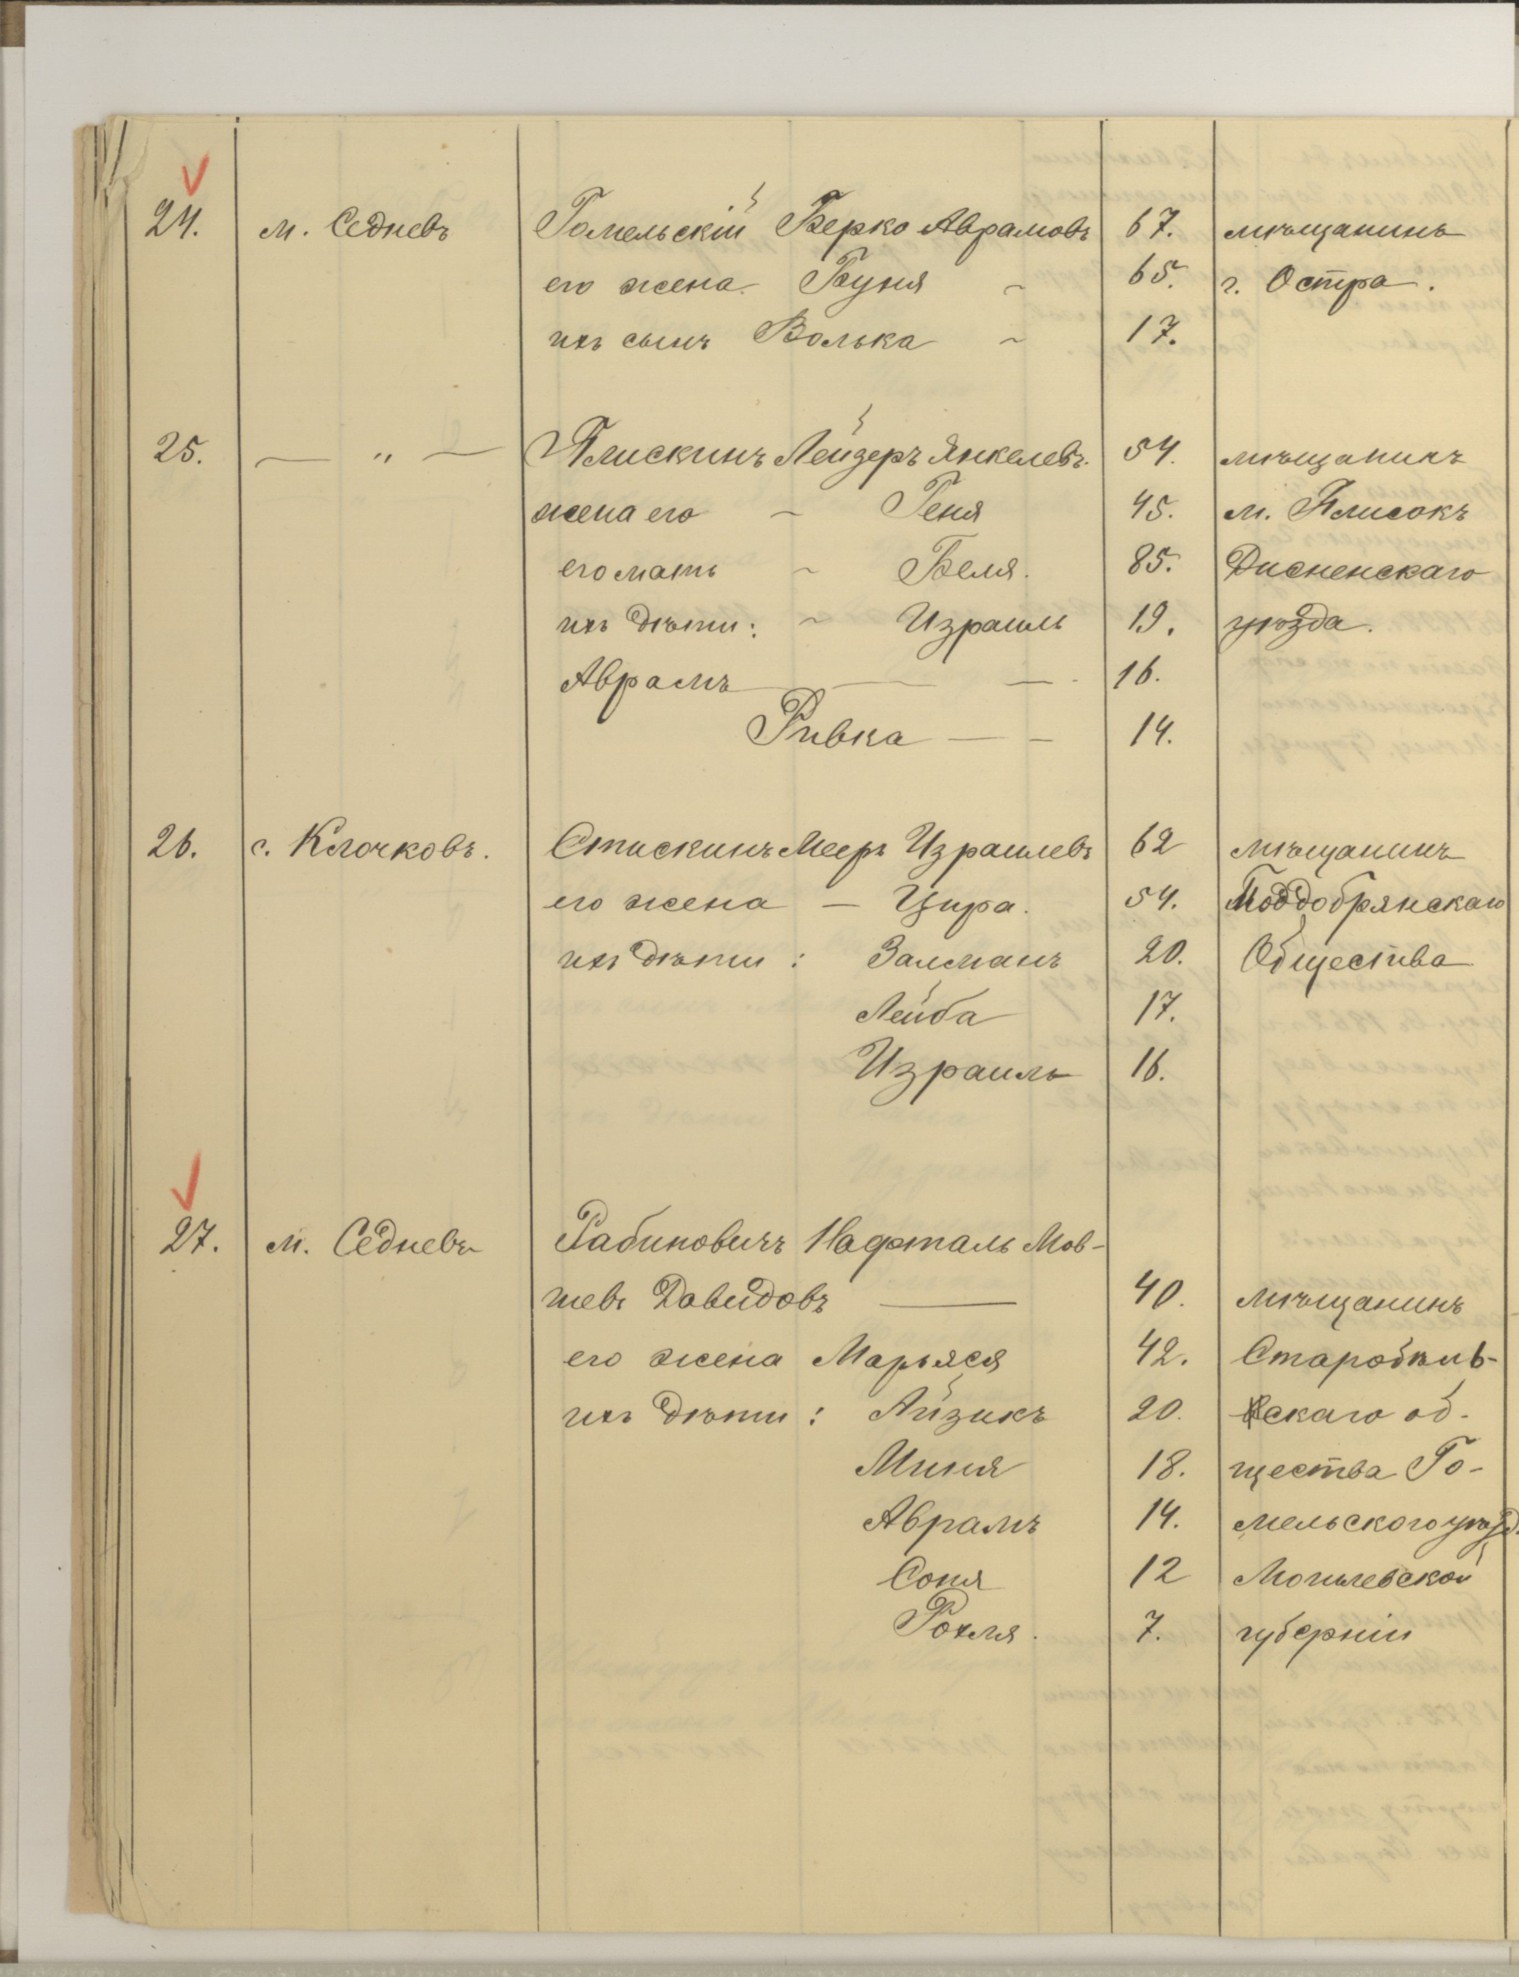 24. м. Седневъ Гомельскій Берко Аврамовъ 67. мѣщанинъ
его жена Буня ~ 65. г. Остра.
ихъ сынъ Волька ~ 17.
25. — " — Плискинъ Лейзеръ Янкелевъ. 54. мѣщанинъ
жена его ~ Геня 45. м. Плисокъ
его мать ~ Беля. 85. Дисненскаго
ихъ дѣти: ~ Израиль 19. уѣзда.
Аврамъ — — 16.
Ривка — — 14.
26. с. Клочковъ. Стискинъ Меер Израилевъ 62 мѣщанинъ
его жена — Цира. 54. Поддобрянскаго
ихъ дѣти: Залманъ 20. Общества
Лейба 17.
Израиль 16.
27. м. Седневъ Рабиновичъ Нафталь Мов-
шевъ Давидовъ — 40. мѣщанинъ
его жена Марьяся 42. Старобѣль-
ихъ дѣти: Айзикъ 20. скаго об-
Миня 18. щества Го-
Аврамъ 14. мельского уѣзд.
Соня 12 Могилевской
Рохля. 7. губерніи